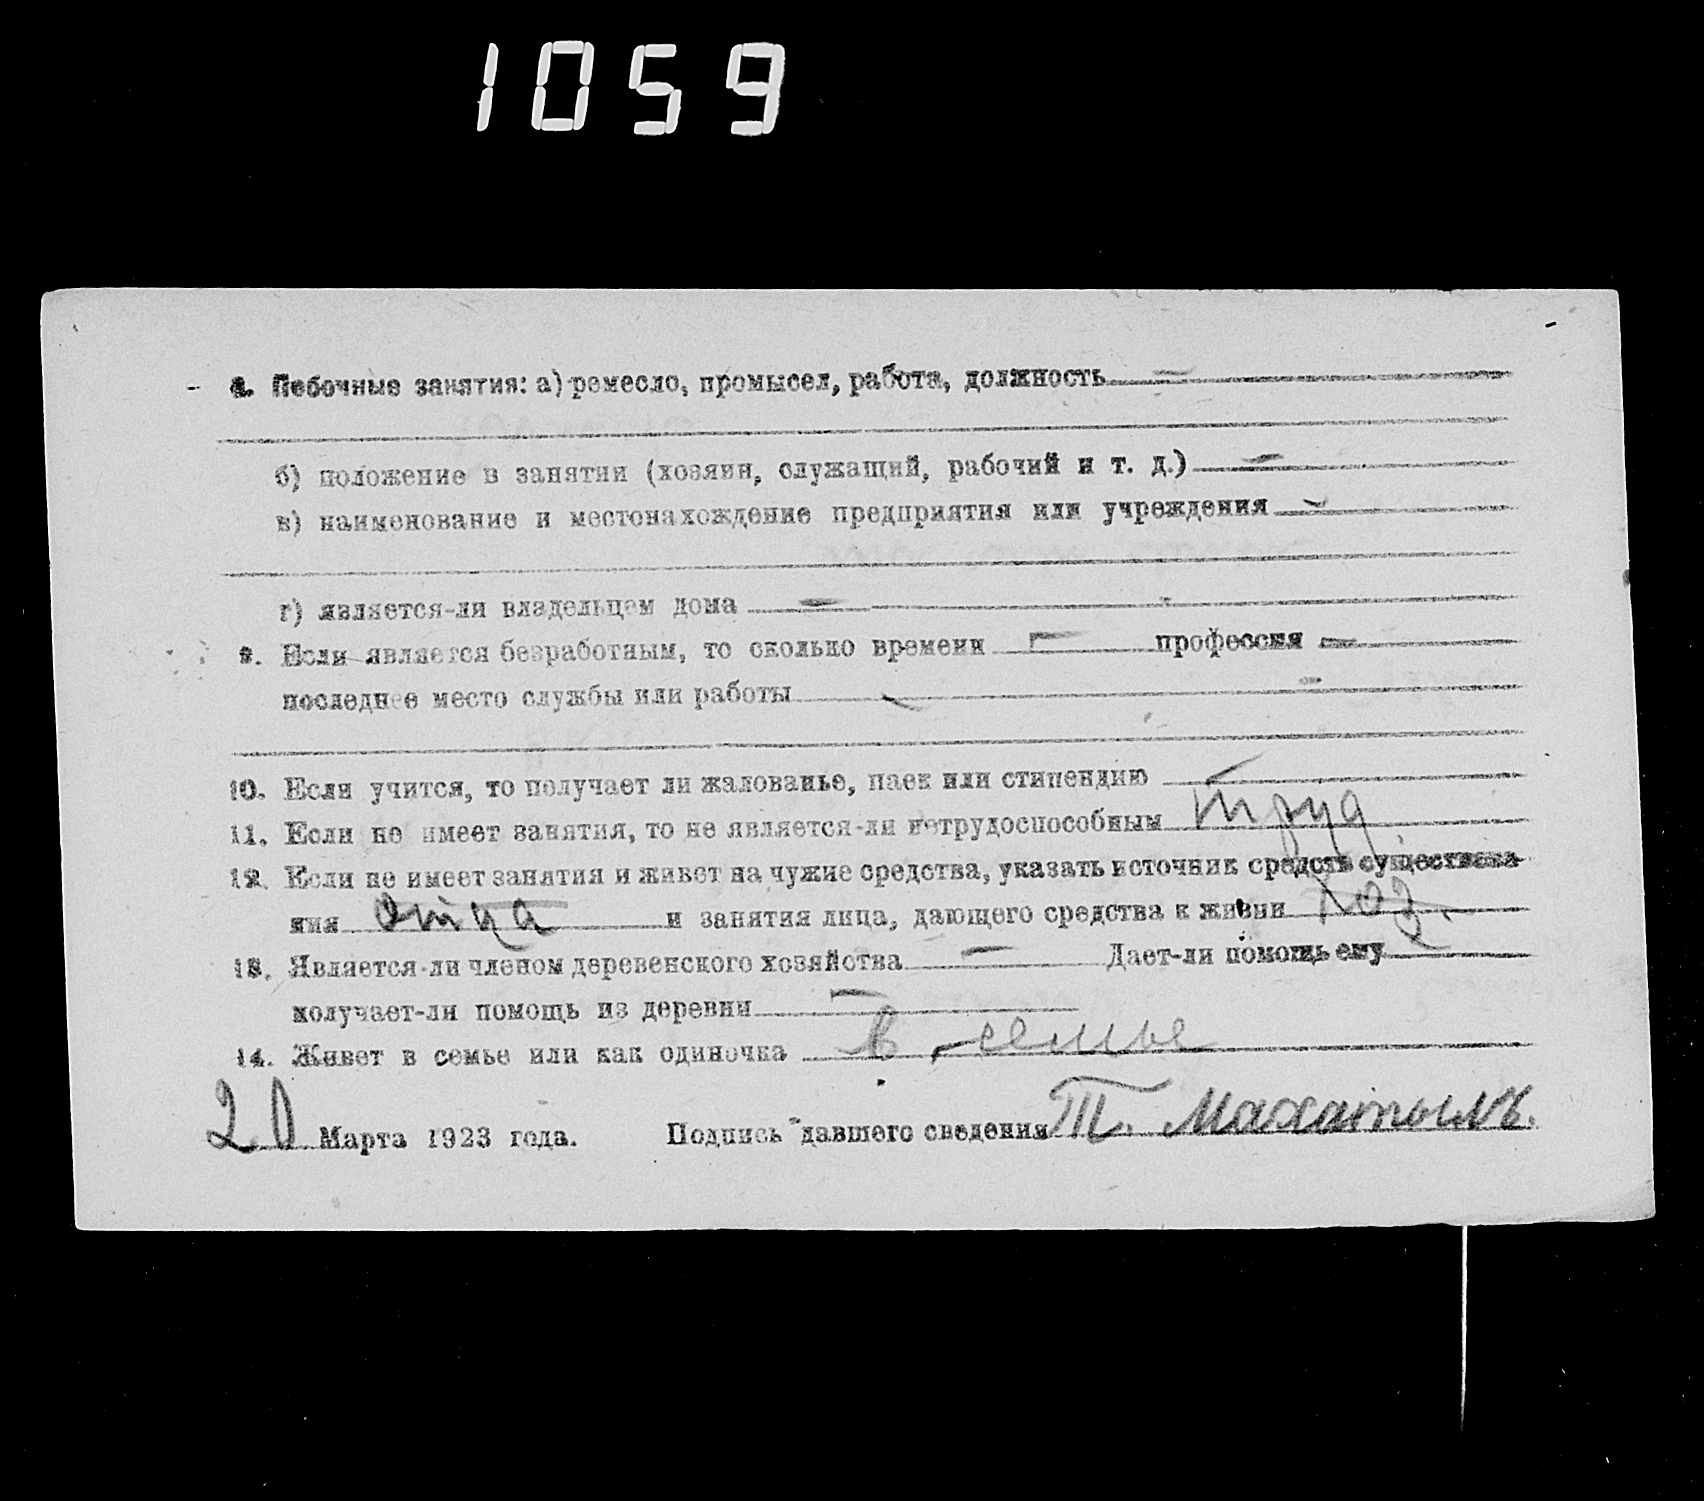 1059
8. Побочные занятия: а) ремесло, промысел, работа, должность —
б) положение в занятии (хозяин, служащий, рабочий и т. д.) —
в) наименование и местонахождение предприятия или учреждения —
г) является-ли владельцем дома —
9. Если является безработным, то сколько времени — профессия —
последнее место службы или работы —
10. Если учится, то получает ли жалованье, паек или стипендию —
11. Если не имеет занятия, то не является-ли нетрудоспособным труд
12. Если не имеет занятия и живет на чужие средства, указать источник средств существова
ния отца и занятия лица, дающего средства к жизни хоз.
13. Является-ли членом деревенского хозяйства — Дает-ли помощь ему
получает-ли помощь из деревни —
14. Живет в семье или как одиночка в семье
20 Марта 1923 года. Подпись давшего сведения Т.